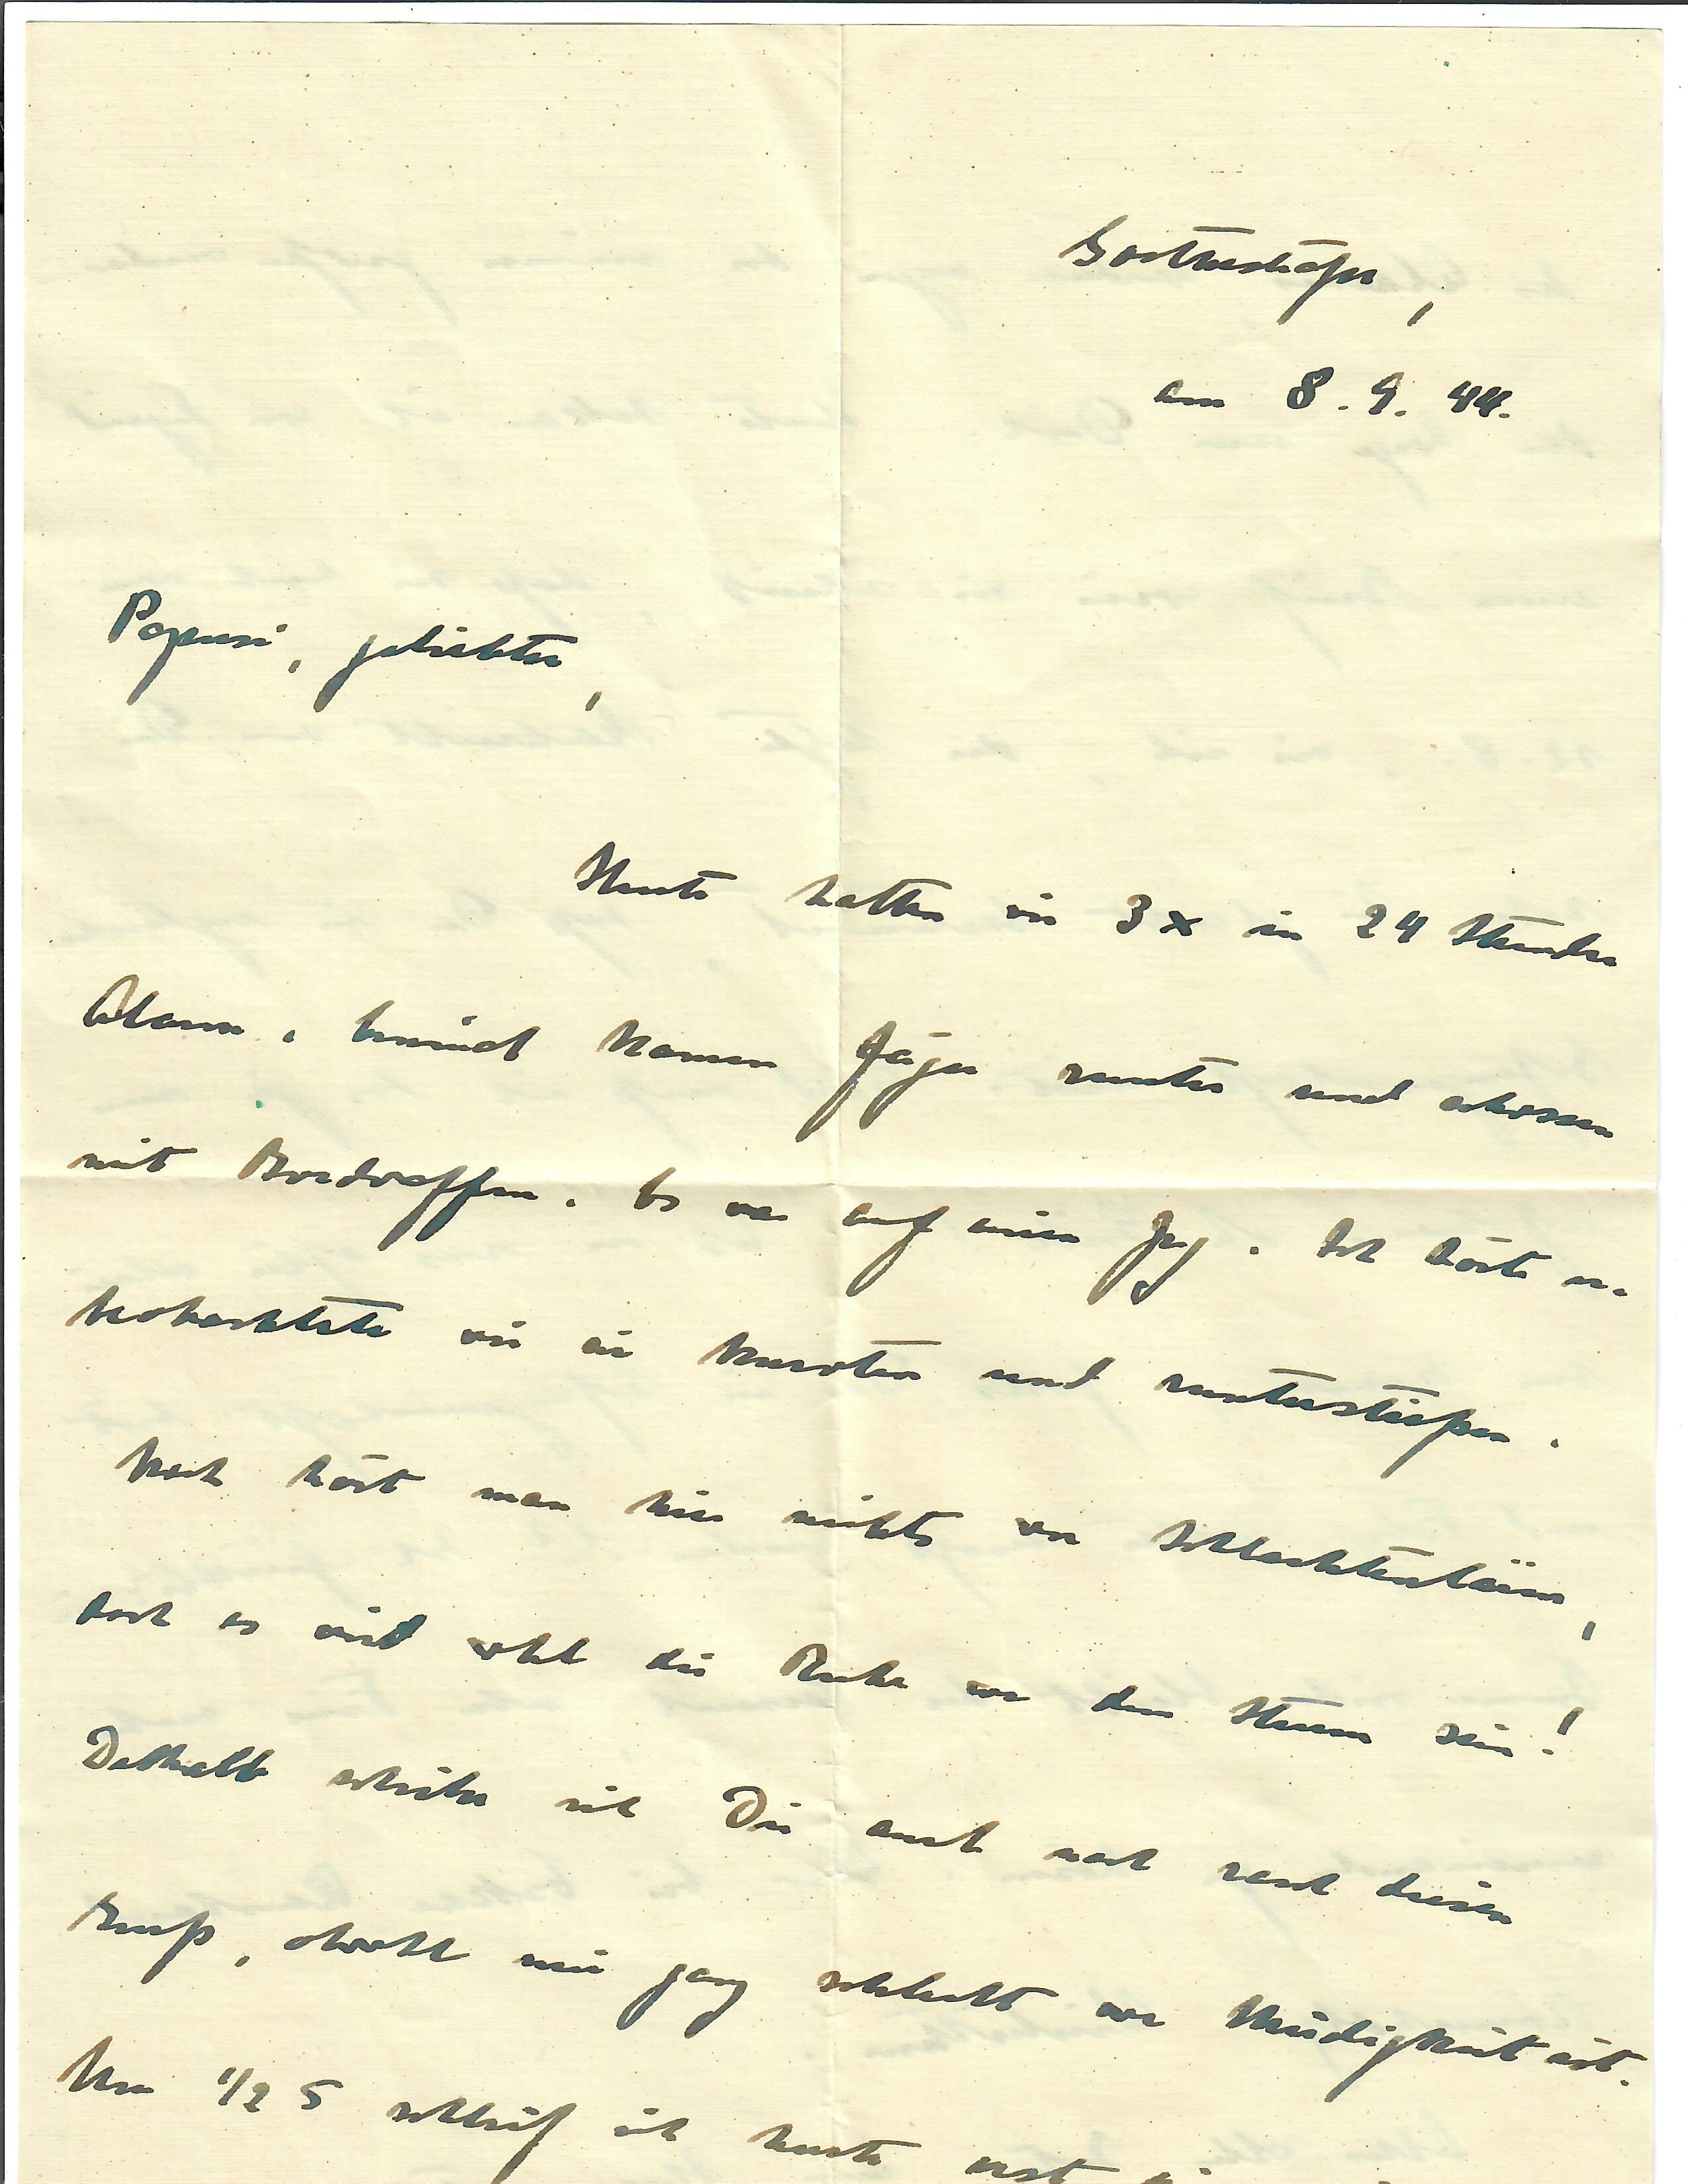 am 8. 9. 44.
Papusi, geliebter,
Heute hatten wir 3x in 24 Stunden
Alarm, kamen Jäger runter und schossen
mit Bordwaffen. Es war auf einen Zug. Ich hörte u.
beobachtete wie sie kurvten und runterstießen.
Noch hört man hier nichts von Schlachtenlärm,
doch es wird wohl die Ruhe vor dem Sturm sein!
Deshalb schreibe ich Dir auch noch rasch diesen
Gruß, obwohl mir ganz schlecht vor Müdigkeit ist.
Um 1/2 5 schlief ich heute erst